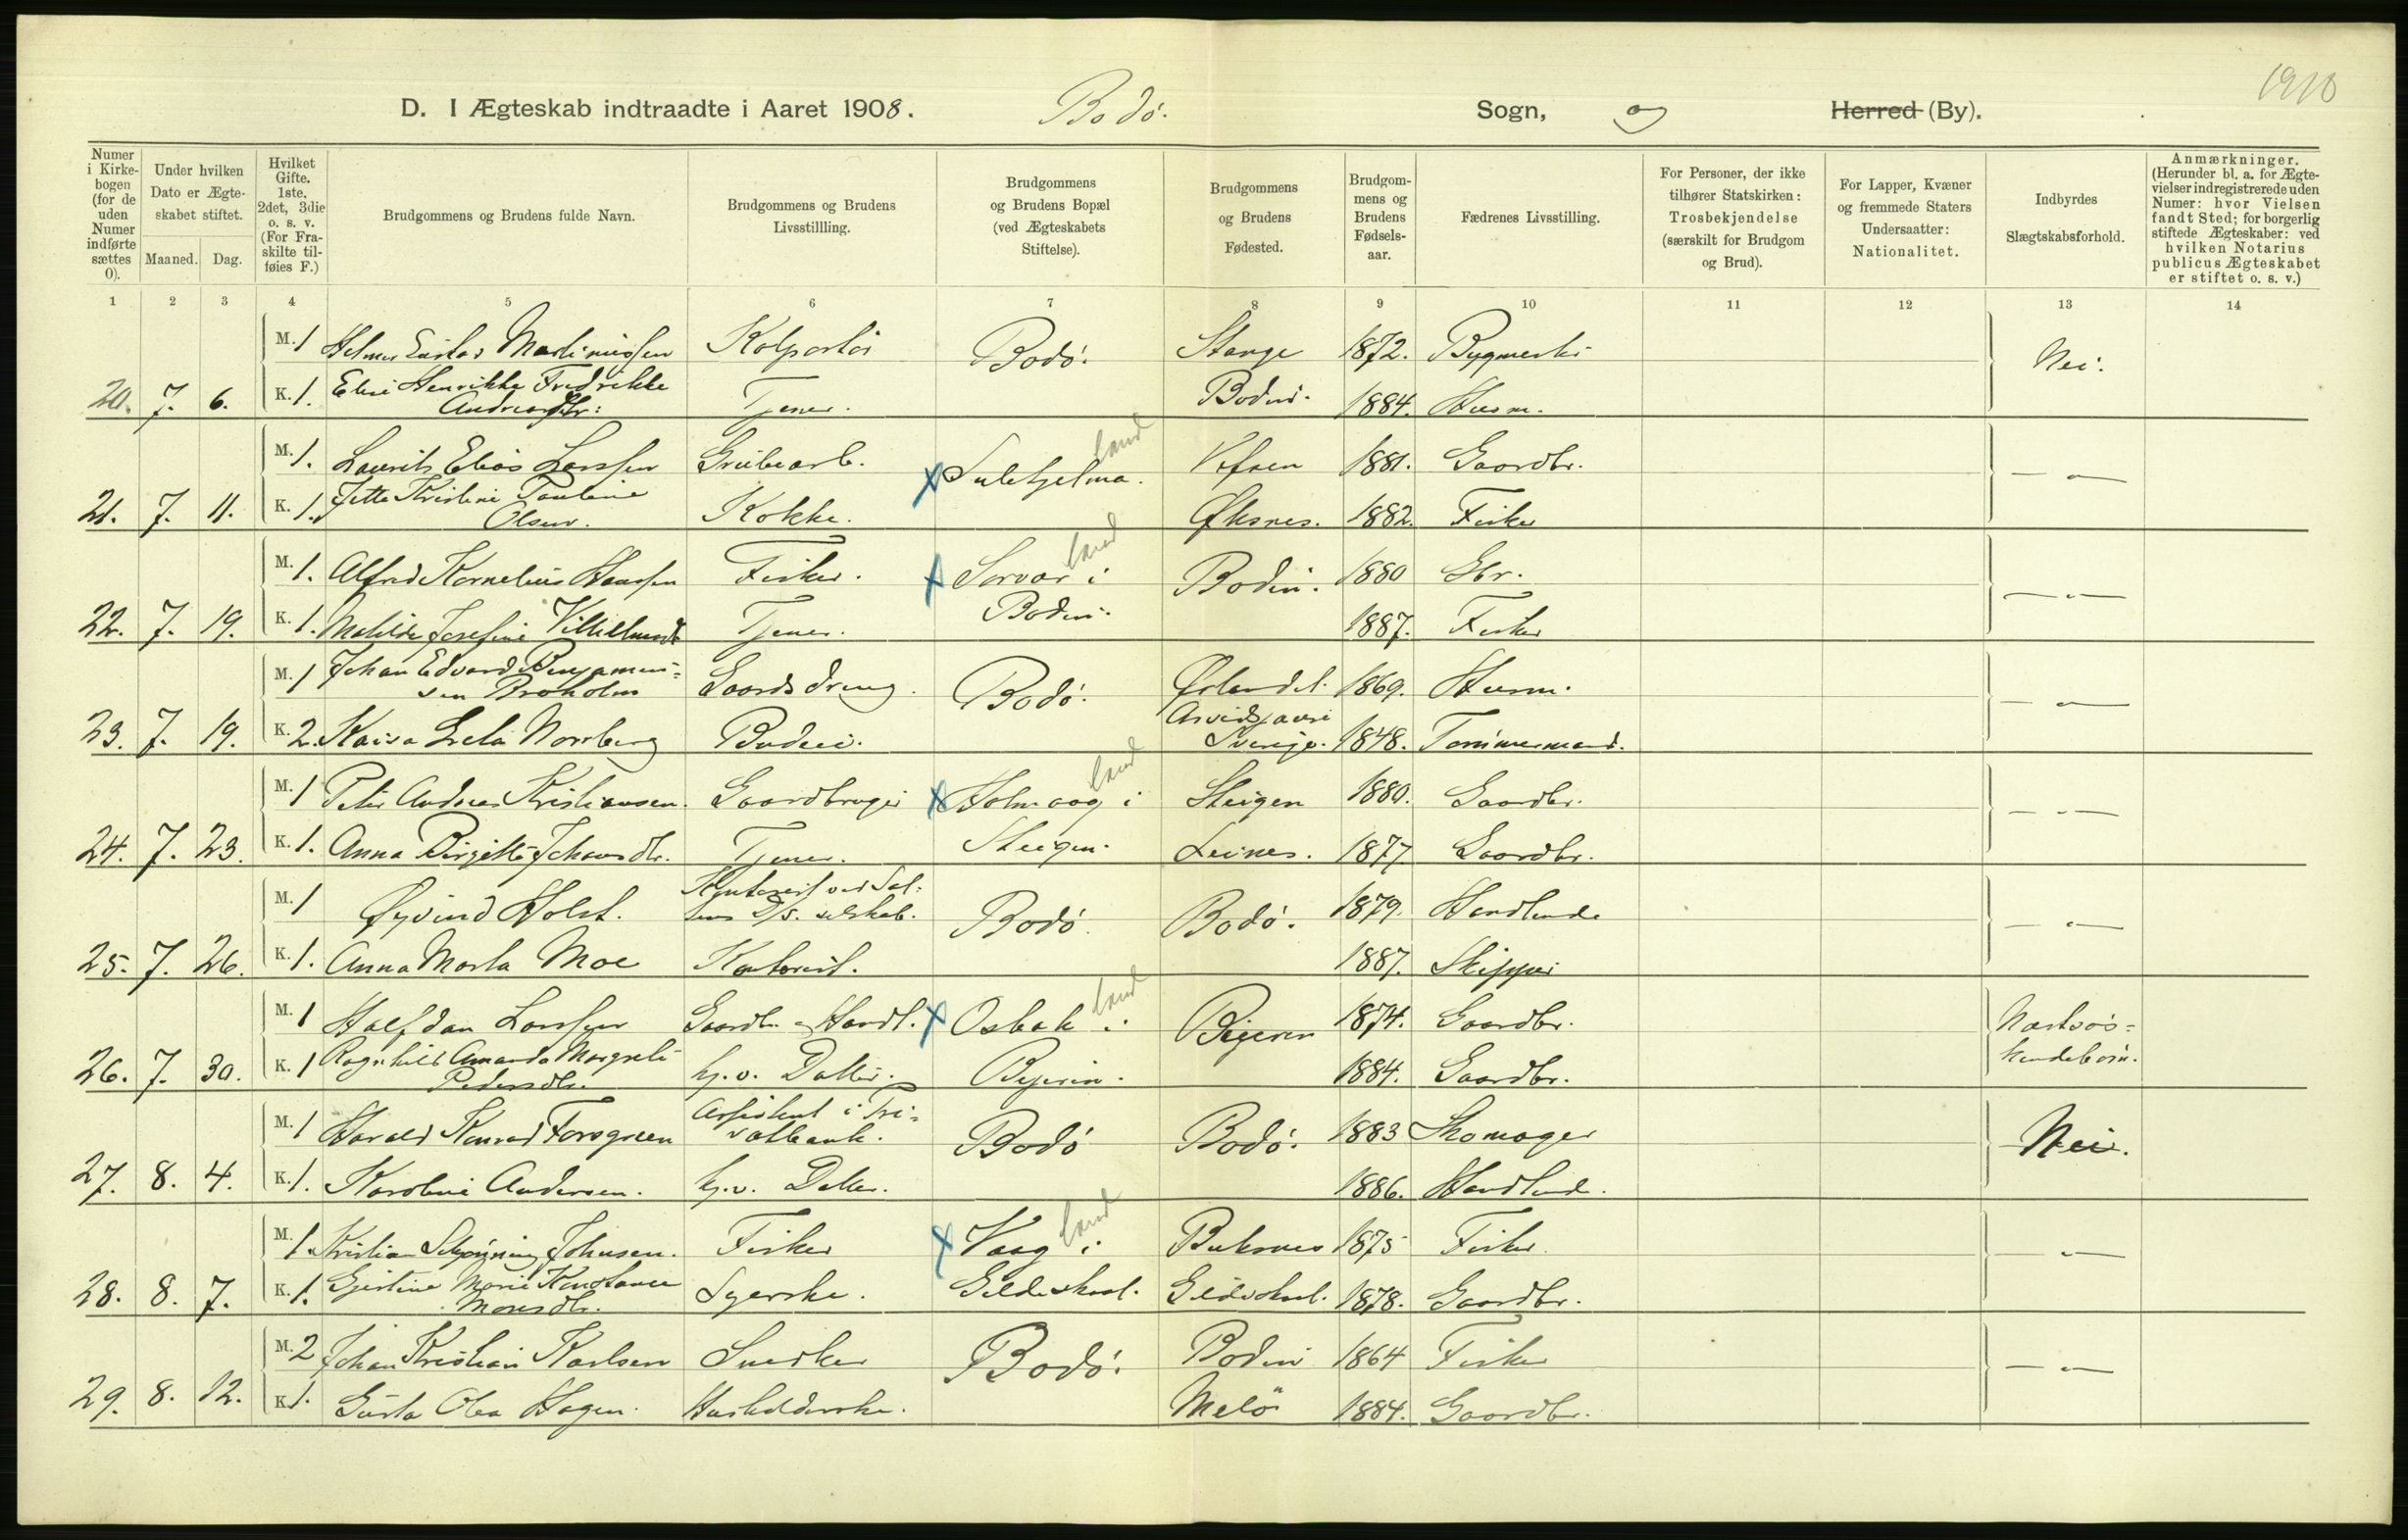 1910
D. I Ægteskab indtraadte i Aaret 1908. Bodø. Sogn, og Herred (By).
Numer i Kirkebogen (for de uden Numer indførte sættes 0).
Under hvilken Dato er Ægteskabet stiftet.
Maaned. Dag.
Hvilket Gifte. 1ste, 2det, 3die o. s. v. (For Fraskilte tilføies F.)
Brudgommens og Brudens fulde Navn.
Brudgommens og Brudens Livsstillling.
Brudgommens og Brudens Bopæl (ved Ægteskabets Stiftelse).
Brudgommens og Brudens Fødested.
Brudgommens og Brudens Fødselsaar.
Fædrenes Livsstilling.
For Personer, der ikke tilhører Statskirken: Trosbekjendelse (særskilt for Brudgom og Brud).
For Lapper, Kvæner og fremmede Staters Undersaatter: Nationalitet.
Indbyrdes Slægtskabsforhold.
Anmærkninger. (Herunder bl. a. for Ægtevielser indregistrerede uden Numer: hvor Vielsen fandt Sted; for borgerlig stiftede Ægteskaber: ved hvilken Notarius publicus Ægteskabet er stiftet o. s. v.)
1 2 3 4 5 6 7 8 9 10 11 12 13 14
M. 1 Martinussen Kolportør Bodø. Stange 1872. Nei.
20. 7. 6. K. 1. Elise Henrikke Fredrikke
Andreasdtr: Tjener. Bodin. 1884. Husm.
M. 1. Laurits Elias Larssen Grubearb. Sulitjelma. land Vefsen 1881. Gaardbr. — " —
21. 7. 11. K. 1. Jette Kristine Pauline
Olsen. Kokke. Øksnes. 1882. Fisker
M. 1. Alfred Kornelius Hanssen Fisker. Sørvær i land Bodin. 1880 Gbr. — " —
22. 7. 19. K. 1. Matilde Josefine Vilhelmsdt Tjener. Bodin. 1887. Fisker
M. 1 Johan Edvard Benjamin=
sen Broholm Gaardsdreng. Bodø. Ørlandet. 1869. Husm. — " —
23. 7. 19. K. 2. Kaisa Greta Norrberg Budeie. Arvidsjauri
Sverige. 1848. Tømmermand.
M. 1 Peter Andreas Kristiansen. Gaardbruger Holmaag i land Steigen 1880. Gaardbr. — " —
24. 7. 23. K. 1. Anna Birgitte Johansdtr. Tjener. Steigen. Leines. 1877 Gaardbr.
M. 1 Øyvind Holst. Kontorist ved Sal=
tens D/S. selskab. Bodø. Bodø. 1879. Handlende — " —
25. 7. 26. K. 1. Anna Marta Moe Kontorist. 1887. Skipper
M. 1 Halfdan Larssen Gaardbr. og Handl. Osbak i land Beieren 1874. Gaardbr. Næstsøs=
kendebørn.
26. 7. 30. K. 1 Ragnhild Amanda Margrete
Pedersdtr. hj.v. Datter. Bejeren. 1884. Gaardbr.
M. 1 Harald Konrad Forsgreen Assistent i Pri=
vatbank. Bodø Bodø. 1883 Skomager Nei.
27. 8. 4. K. 1. Karoline Andersen. hj.v. Datter. 1886. Handlende.
M. 1. Kristian Schjønning Johnsen. Fisker Vaag i land Buksnes 1875 Fisker. — " —
28. 8. 7. K. 1. Gjertine Marie Konstance
Monsdtr. Syerske. Gildeskaal. Gildeskaal. 1878. Gaardbr.
M. 2 Johan Kristian Karlsen Snedker Bodø. Bodin 1864 Fisker — " —
29. 8. 12. K. 1. Gusta Olea Hagen. Husholderske. Melø 1884. Gaardbr.